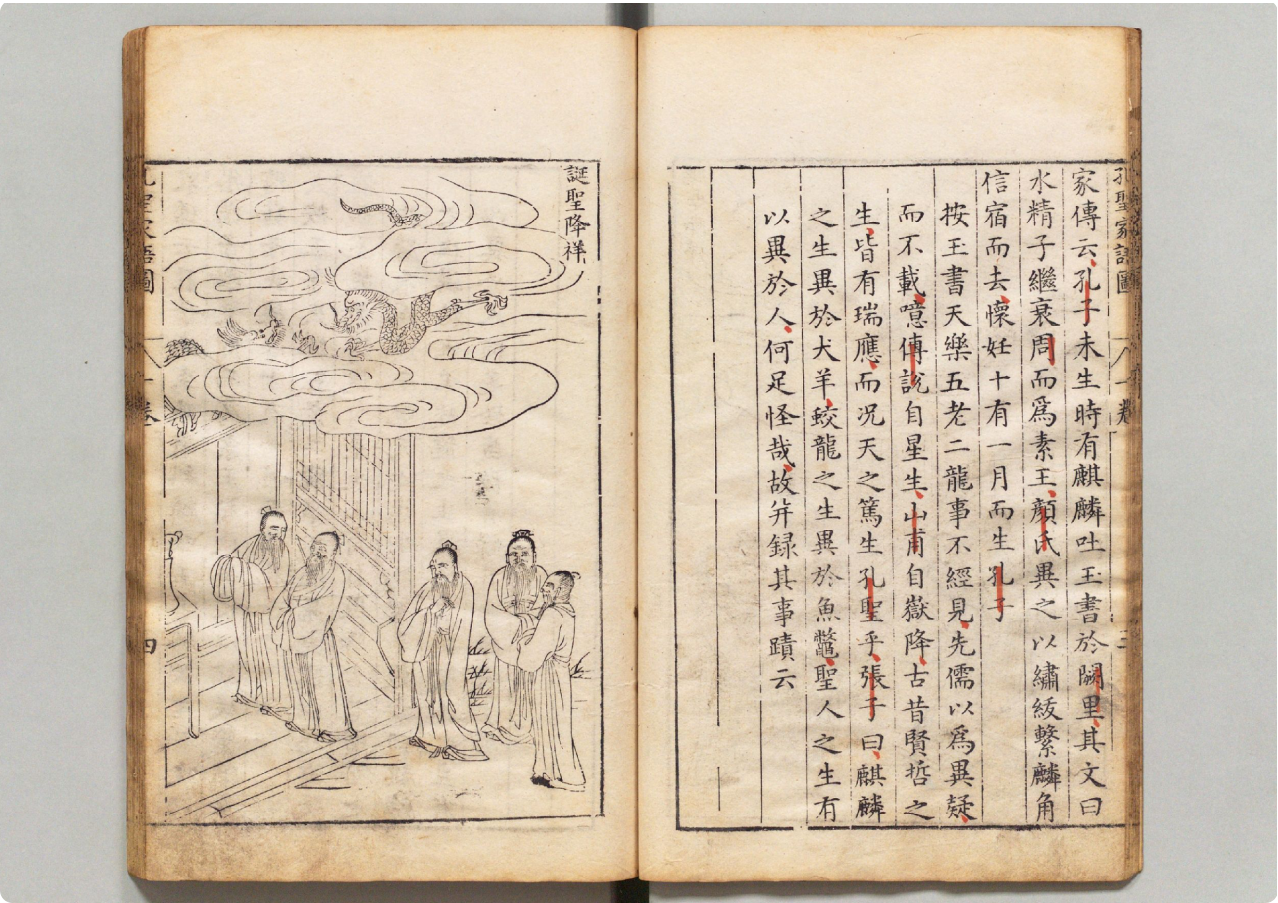 孔聖家語圖
一卷
三
家傳云孔子未生時有麒麟吐王書於闕里其文曰
水精子繼衰周而爲素王顏氏異之以繡紱繫麟角
信宿而去懷妊十有一月而生孔子
按王書天樂五老二龍事不經見先儒以爲異疑
而不載噫傅說自星生山甫自嶽降古昔賢哲之
生皆有瑞應而况天之篤生孔聖乎張子曰麒麟
之生異於犬羊蛟龍之生異於魚鼈聖人之生有
以異於人何足怪哉故并録其事蹟云
誕聖降祥
孔聖家語圖
一卷
四